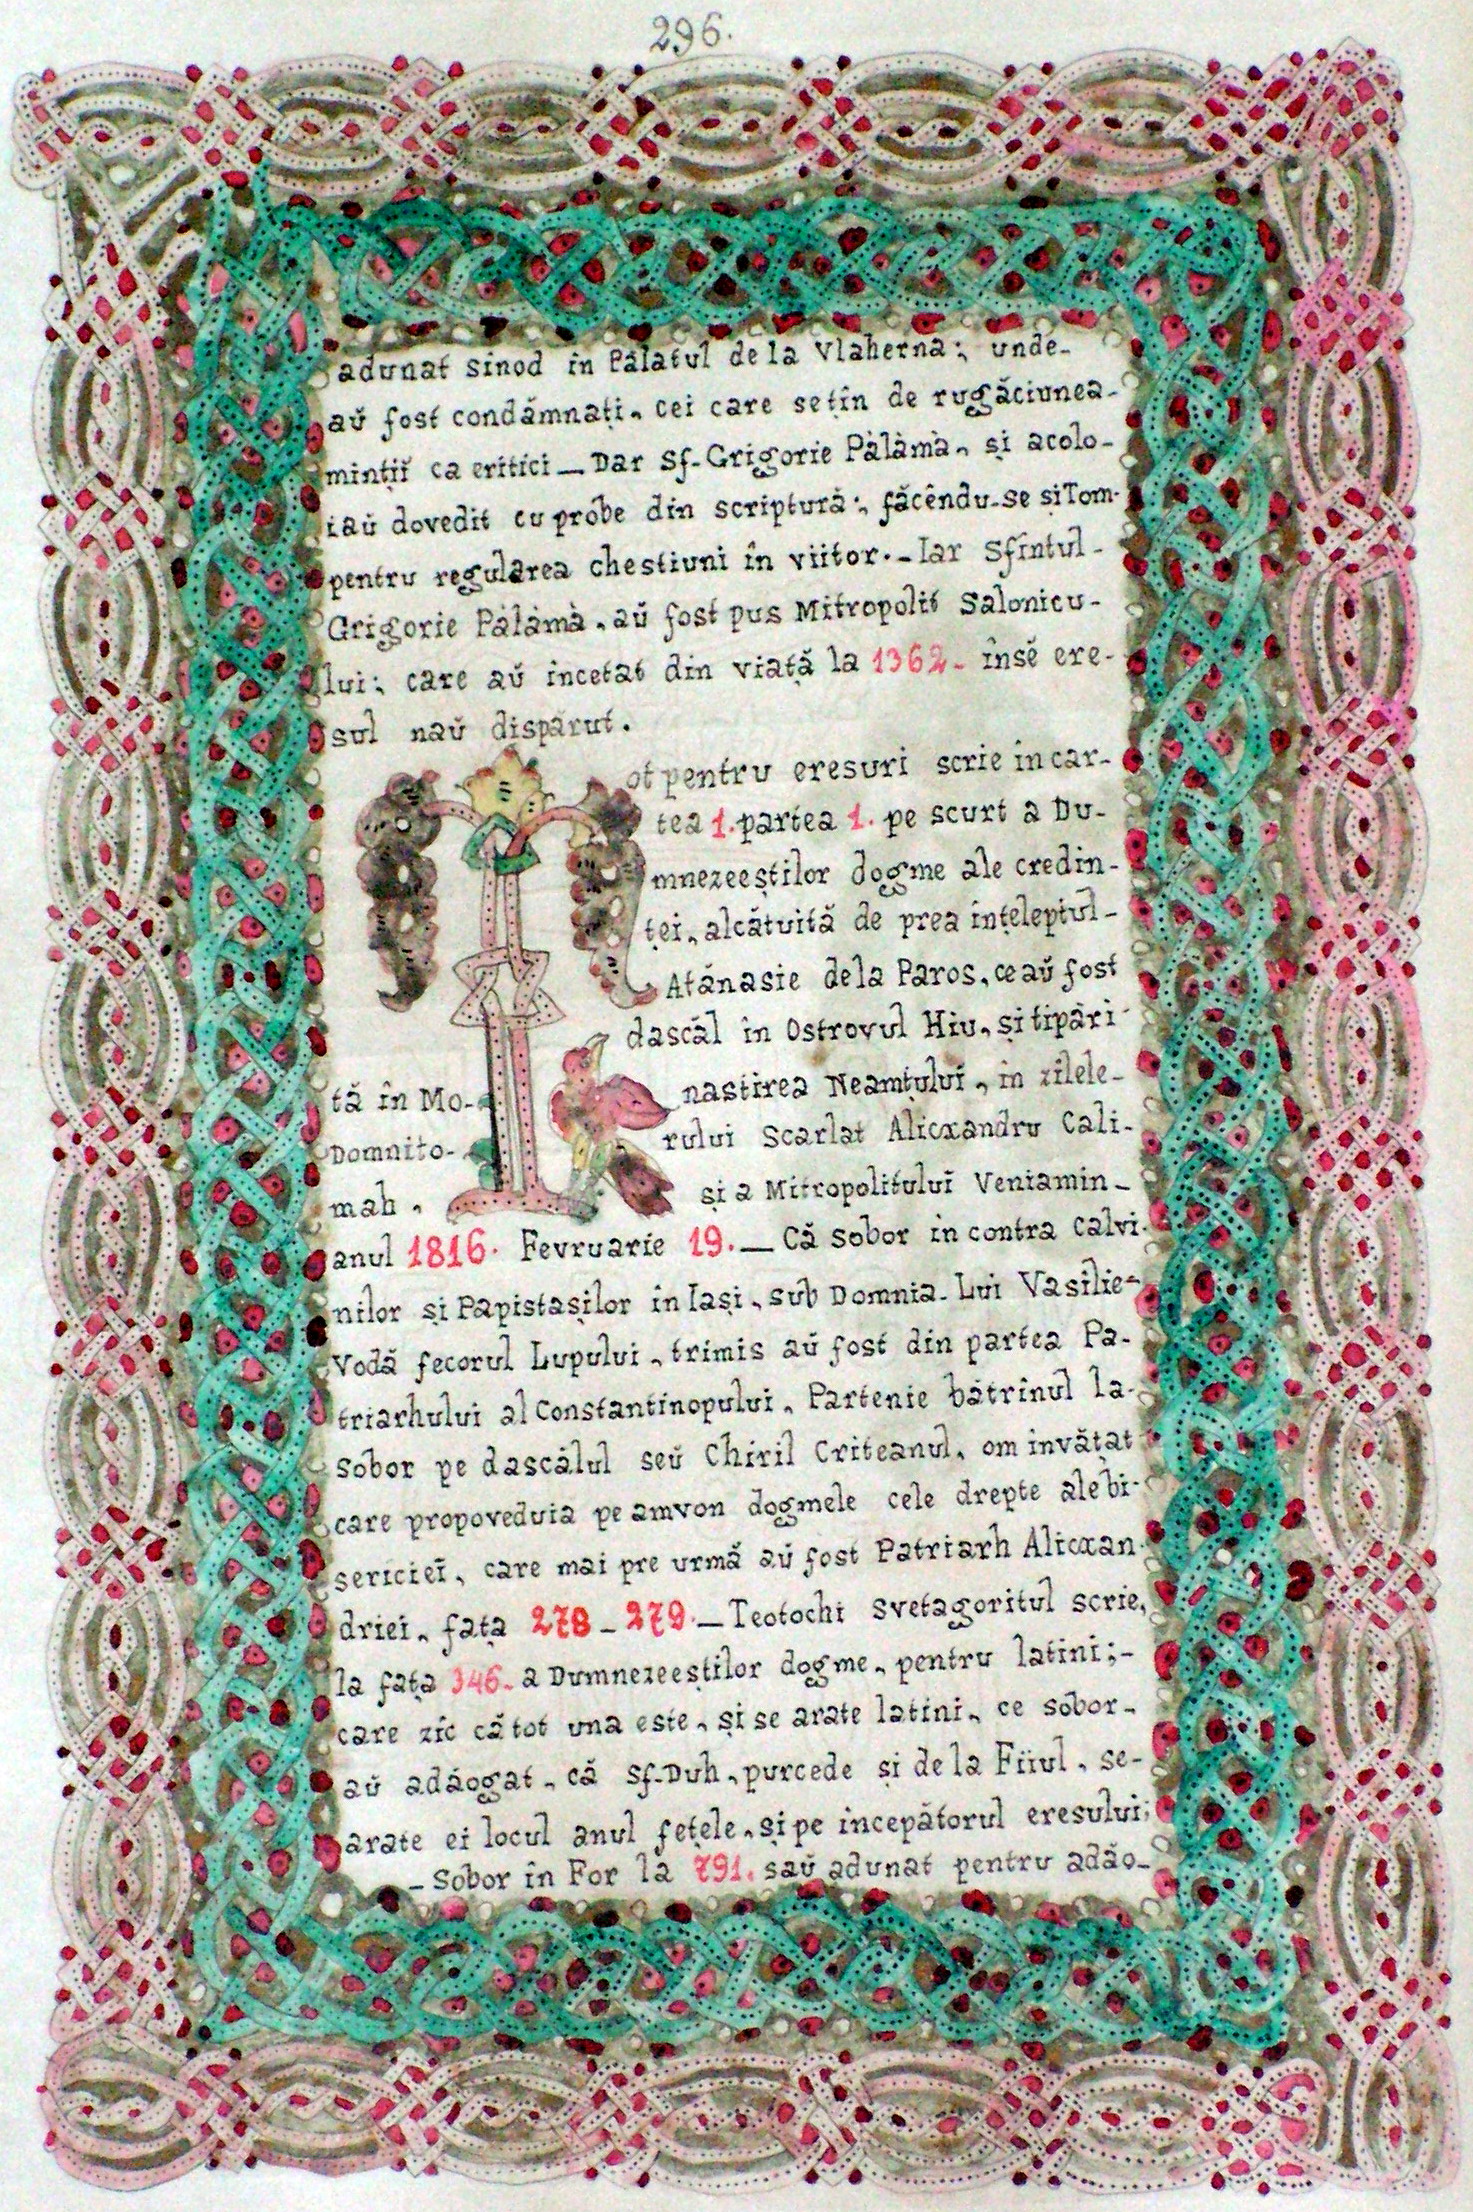 296.
adunat sinod in Pălatul de la Vlaherna; unde-
aŭ fost condămnați, cei care sețin de rugăciunea-
minții ca eritici — Dar Sf-Grigorie Pàlàmà, și acolo-
iaŭ dovedit cu probe din scriptură; făcêndu-se și Tom-
pentru regularea chestiuni în viitor.- Iar Sfîntul-
Grigorie Pàlàmà, aŭ fost pus Mitropolit Salonicu-
lui; care aŭ incetat din viață la 1362- însĕ ere-
sul naŭ dispărut.
Tot pentru eresuri scrie in car-
tea 1. partea 1. pe scurt a Du-
mnezeeștilor dogme ale credin-
ței, alcătuită de prea ințeleptul-
Atănasie dela Paros, ce aŭ fost
dascăl în Ostrovul Hiu, și tipări-
tă în Mo- nastirea Neamțului, in zilele-
Domnito- rului Scarlat Alicxandru Cali-
mah, și a Mitropolitului Veniamin-
anul 1816. Fevruarie 19. — Că sobor in contra Calvi-
nilor și Papistașilor în Iași, sub Domnia-Lui Vasilie-
Vodă fecorul Lupului, trimis aŭ fost din partea Pa-
triarhului al Constantinopului, Partenie bătrînul la-
Sobor pe dascălul seŭ Chiril Criteanul, om invățat
care propoveduia pe amvon dogmele cele drepte ale bi-
sericieĭ, care mai pre urmă aŭ fost Patriarh Alicxan-
driei, fața 278 - 279. — Teotochi Svetagoritul scrie,
la fața 346- a Dumnezeeștilor dogme, pentru latini;-
care zic că tot una este, și se arate latini, ce sobor-
aŭ adăogat, că Sf-Duh, purcede și de la Fiiul, se-
arate ei locul anul fețele, și pe incepătorul eresului;
- Sobor în For la 791. saŭ adunat pentru adăo-